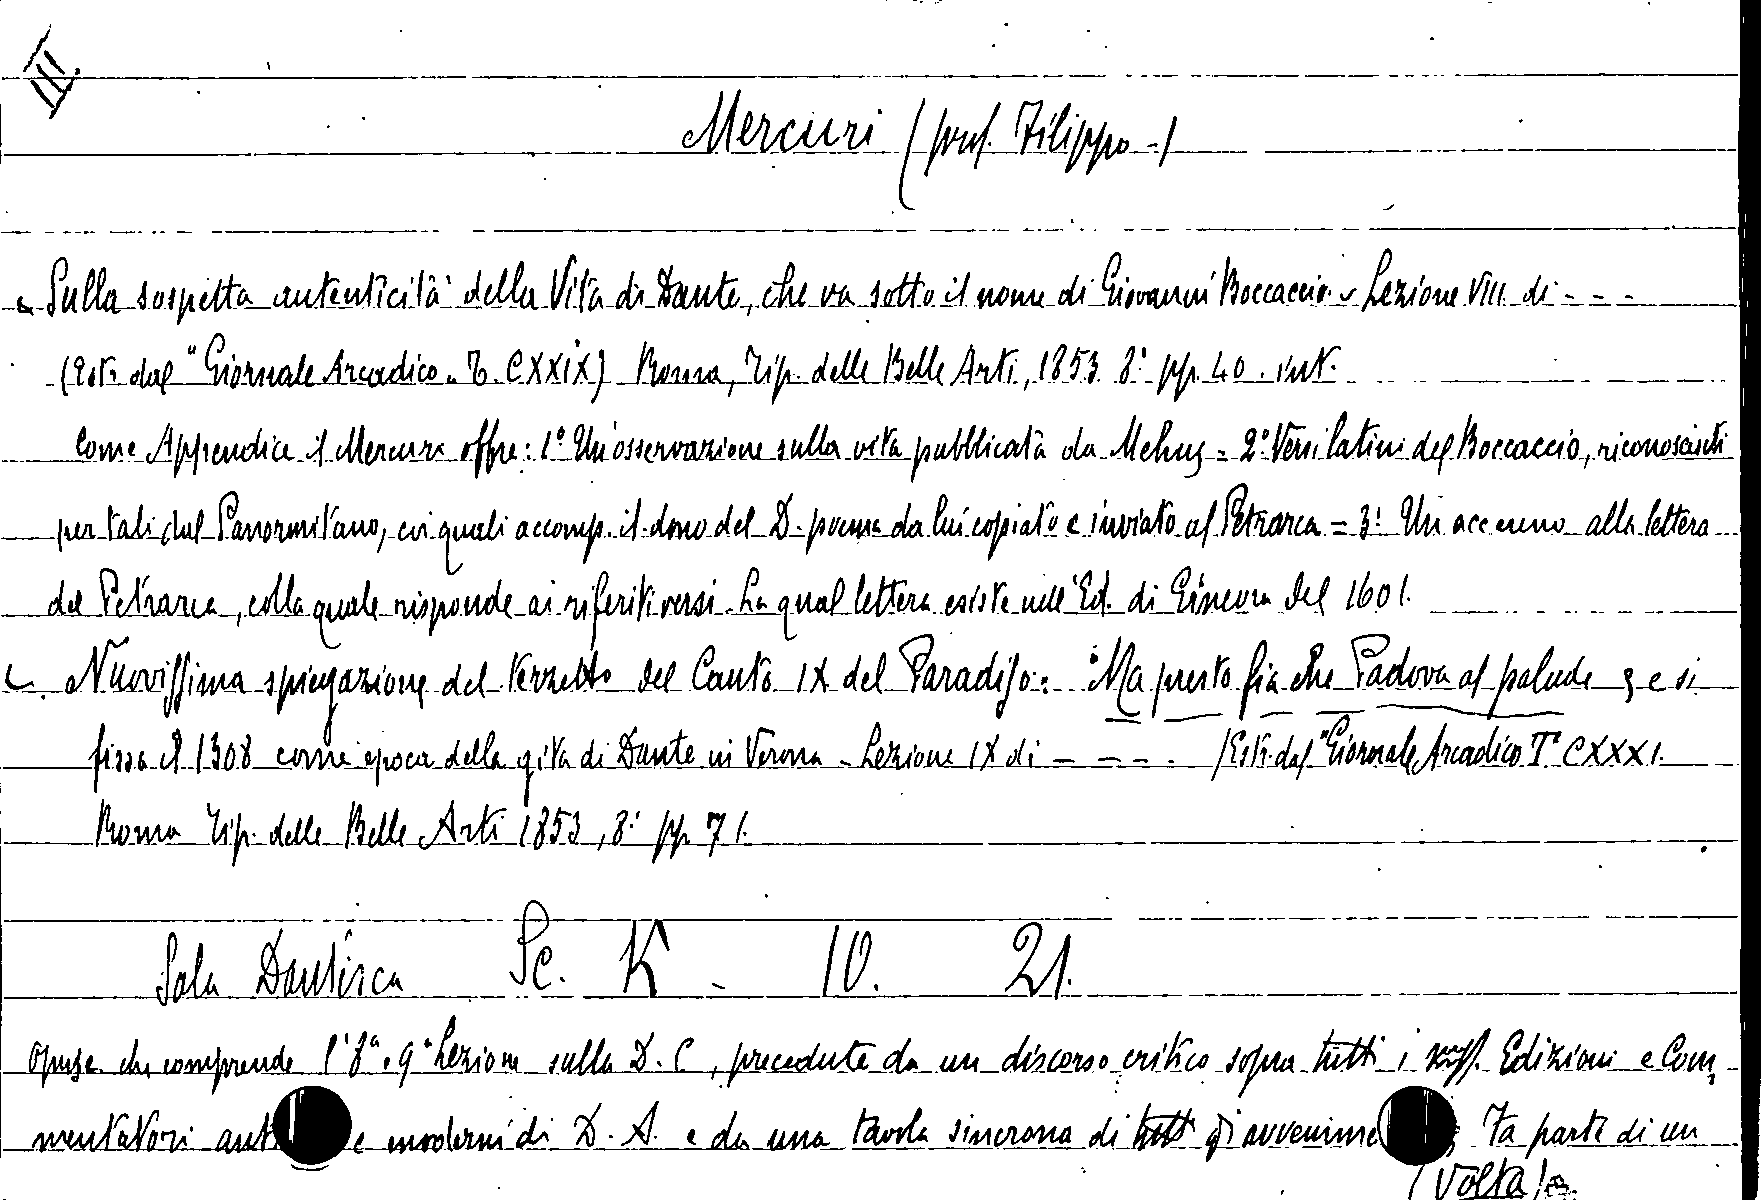 III.
Mercuri (prof. Filippo -)
a. Sulla sospetta autenticità della Vita di Dante, che va sotto il nome di Giovanni Boccaccio - Lezione VIII. di - - -
(Estr. dal "Giornale Arcadico. T. CXXIX) Roma, Tip. delle Belle Arti, 1853. 8° pp. 40. int.
Come Appendice il Mercuri offre: 1° Un'osservazione sulla vita pubblicata da Mehus = 2° Versi latini del Boccaccio, riconosciuti
per tali dal Panormitano, coi quali accomp. il dono del D. poema da lui copiato e inviato al Petrarca = 3° Un accenno alla lettera
del Petrarca, colla quale risponde ai riferiti versi. La qual lettera esiste nell'Ed. di Ginevra del 1601.
Nuovissima spiegazione del terzetto del Canto IX del Paradiso: "Ma presto fia che Padova al palude; e si
fissa il 1308 come epoca della gita di Dante in Verona - Lezione IX di - - - - (Estr. dal "Giornale Arcadico T° CXXXI.
Roma Tip. delle Belle Arti 1853, 8° pp 71.
Sala Dantesca Sc. K - 10. 21.
Opusc. che comprende l'8ª e 9ª Lezione sulla D. C, precedute da un discorso critico sopra tutti i Edizioni e Com
mentatori ant e moderni di D. A. e da una tavola sincrona di tutti gl avvenime Fa parte di un
(Volta)